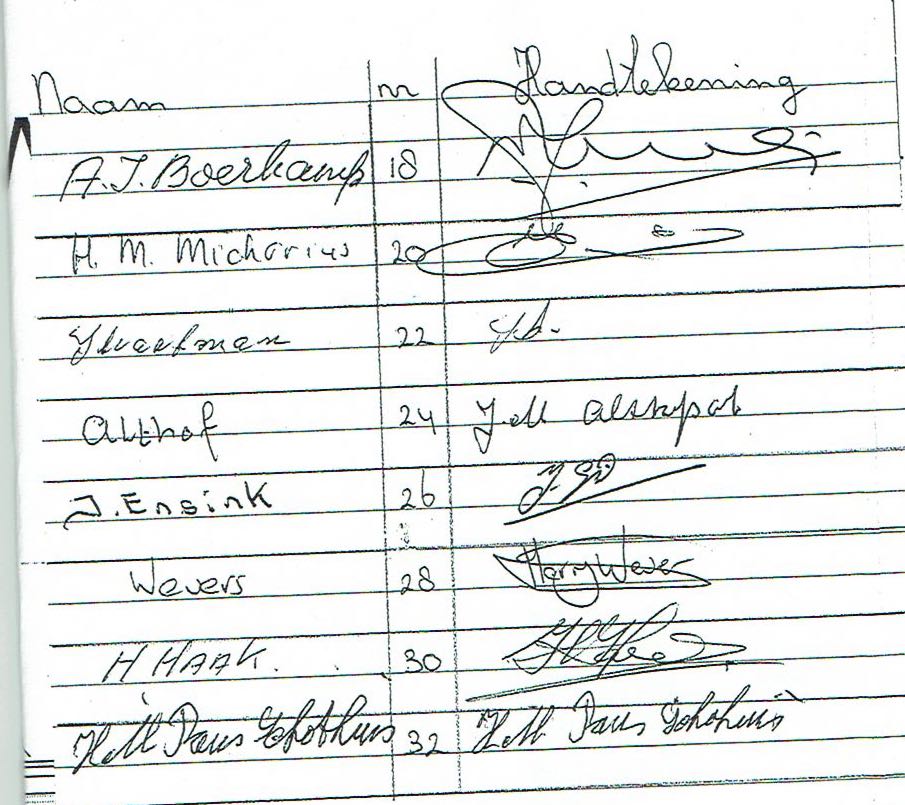 Naam nr Handtekening
A.J. Boerkamp 18
H. M. Michorius 20
22
Althof 24 J.M
J. Ensink 26
Wevers 28 Harry Wever
H HAAK. 30
H.M Paus Schothuis 32 H.M Paus Schothuis